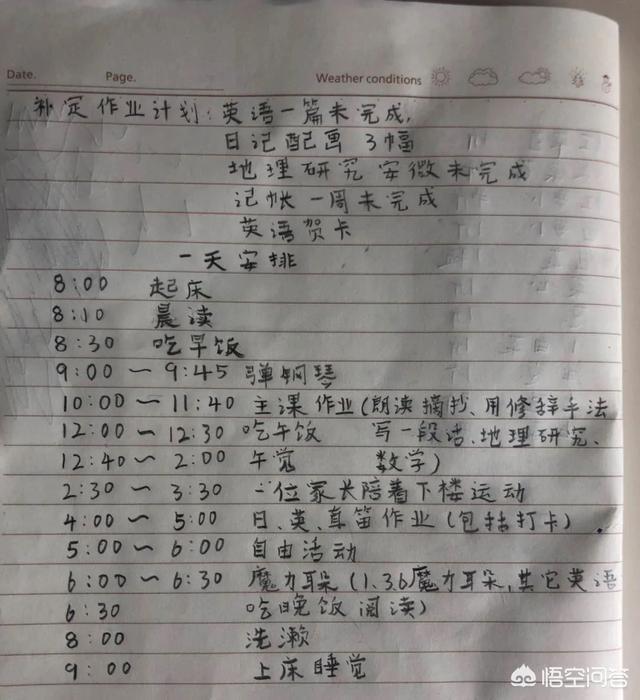 Date. Page. Weather conditions
补定作业计划:英语一篇未完成,
日记配画 3幅
地理研究 安微未完成
记帐一周未完成
英语贺卡
一天安排
8:00 起床
8:10 晨读
8:30 吃早饭
9:00 ~ 9:45 弹钢琴
10:00 ~ 11:40 主课作业(朗读摘抄、用修辞手法
12:00 ~ 12:30 吃午饭 写一段话、地理研究、
12:40 ~ 2:00 午觉 数学)
2:30 ~ 3:30 一位家长陪着下楼运动
4:00 ~ 5:00 日、英、真笛作业(包括打卡).
5:00 ~ 6:00 自由活动
6:00 ~ 6:30 魔力耳朵(1.3.6魔力耳朵,其它英语
6:30 吃晚饭 阅读)
8:00 洗漱
9:00 上床睡觉
悟空问答